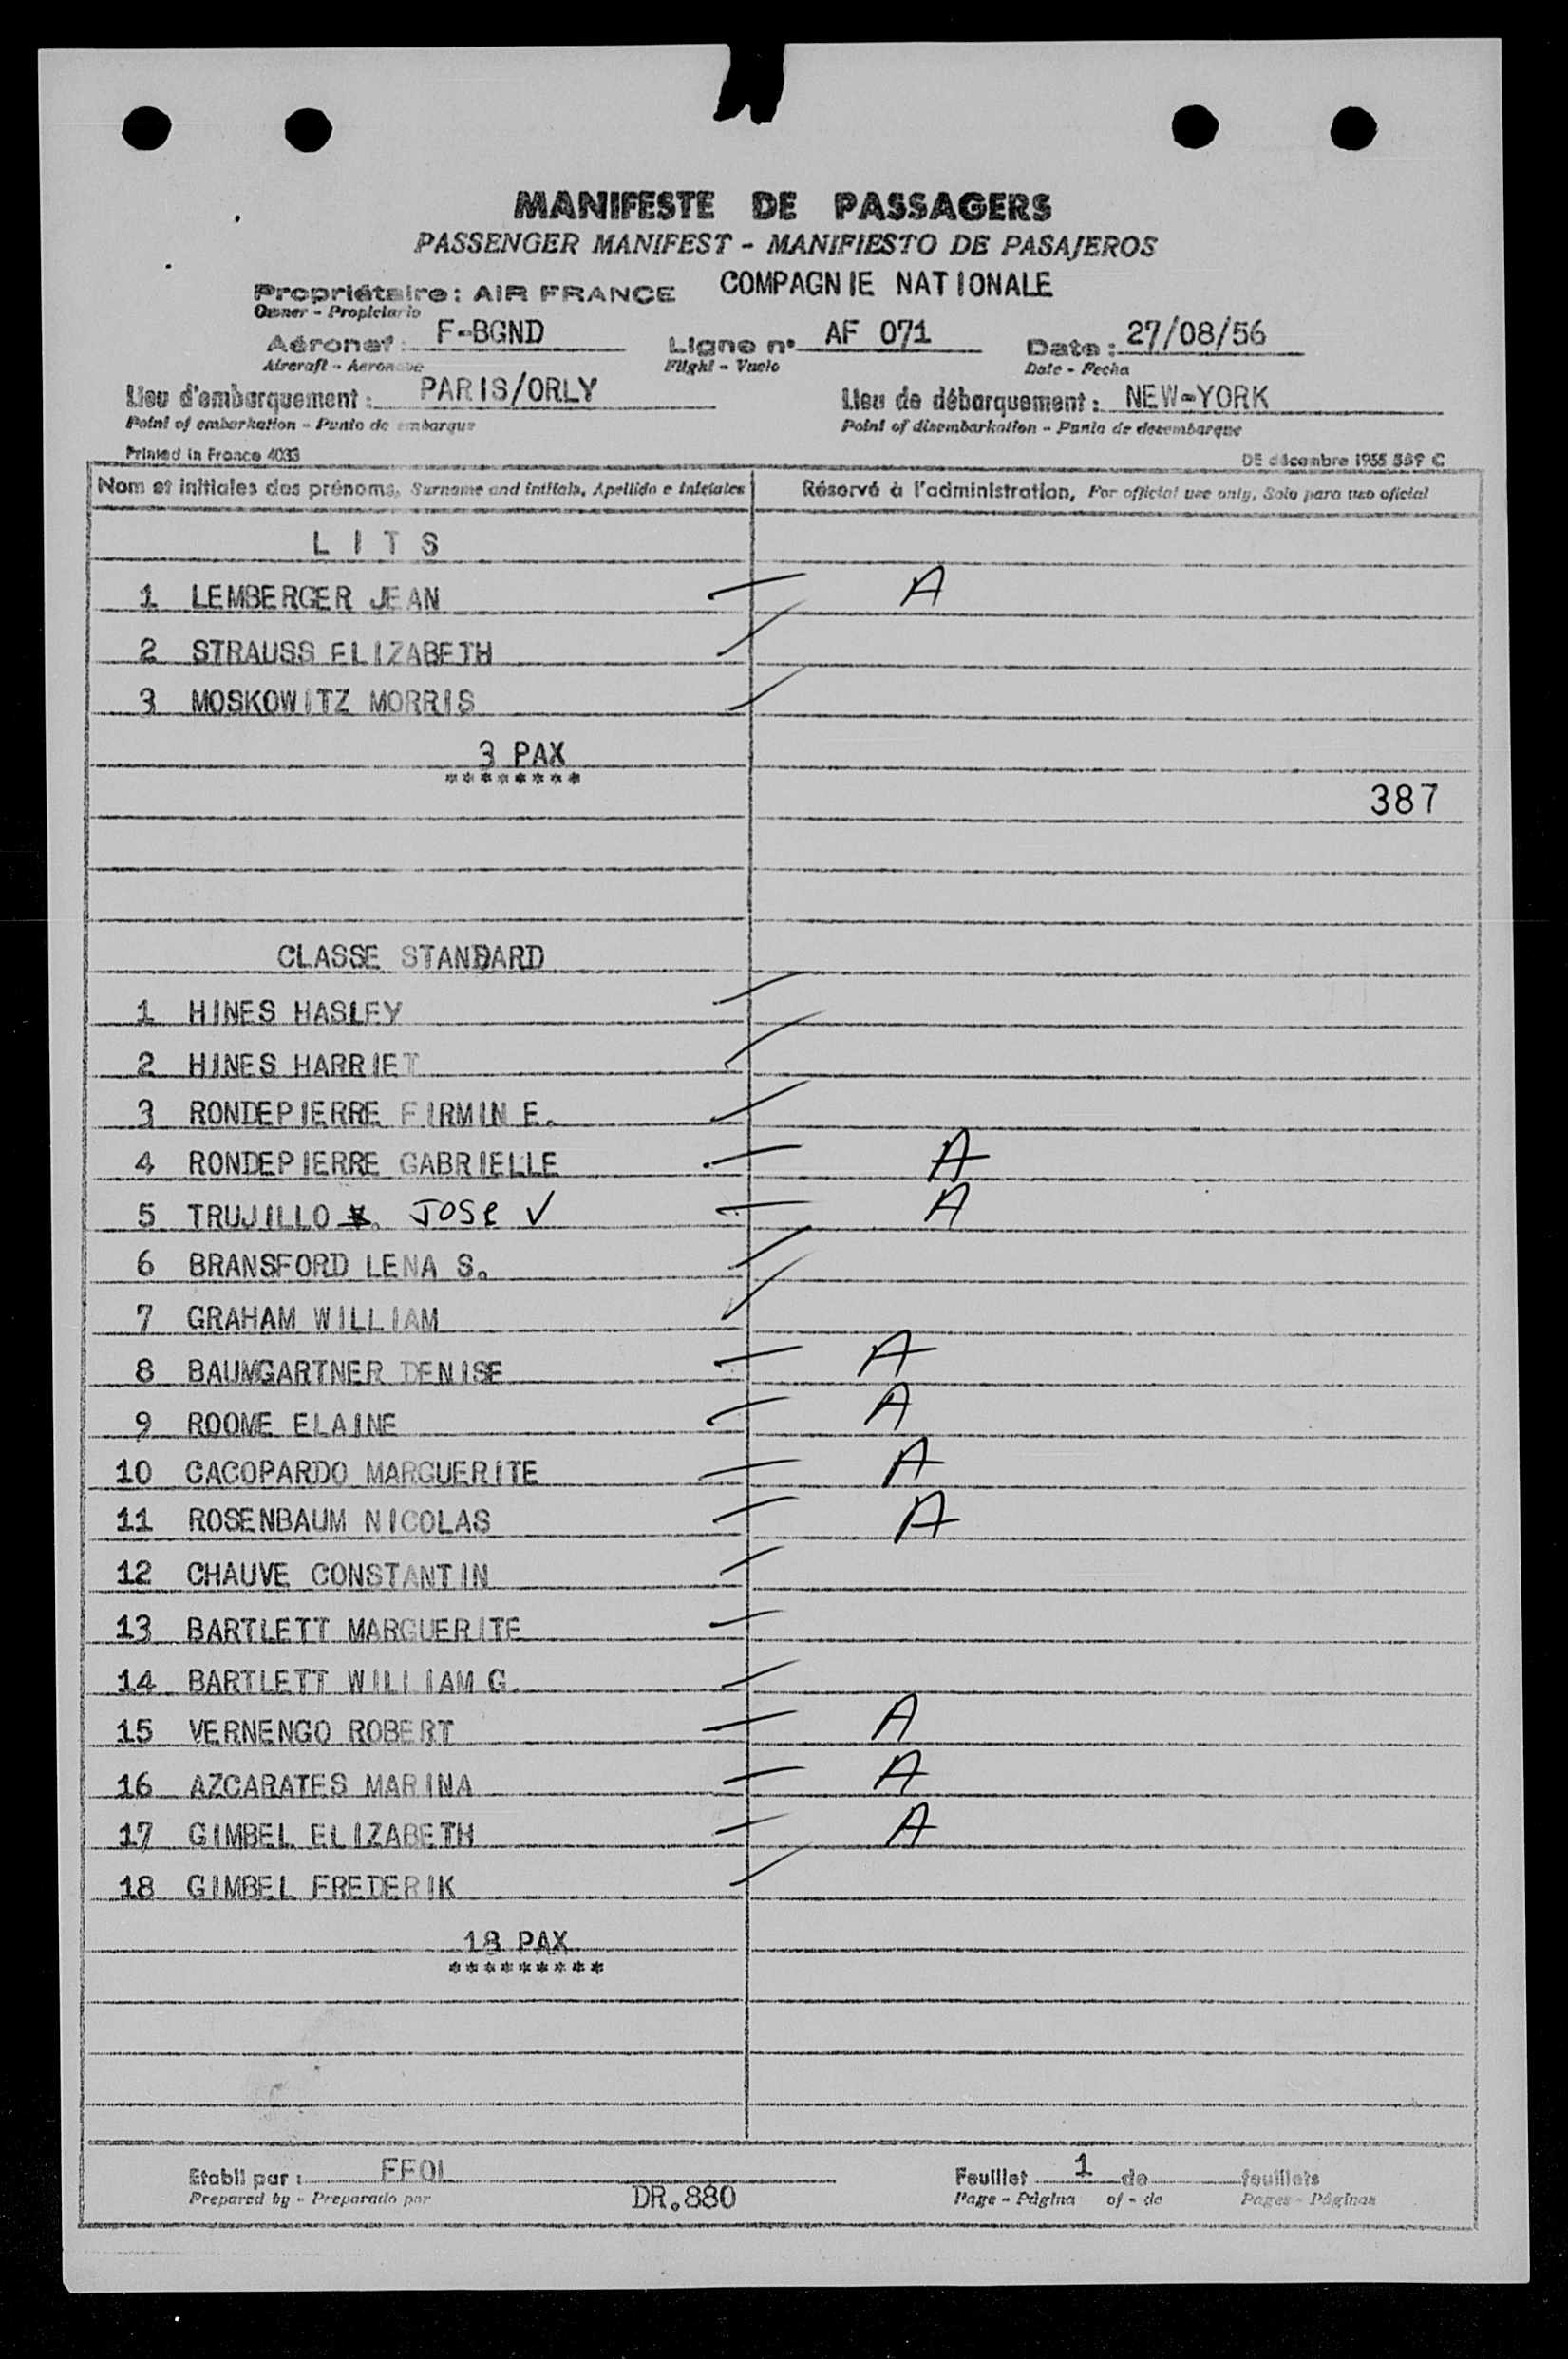 MANIFESTE DE PASSAGERS
PASSENGER MANIFEST - MANIFIESTO DE PASAJEROS
Propriétaire: AIR FRANCE COMPAGNIE NATIONALE
Owner - Propietario
Aéronef: F-BGND Ligne n° AF 071 Date: 27/08/56
Aircraft - Aeronave Flight - Vuelo Date - Fecha
Lieu d'embarquement: PARIS/ORLY Lieu de débarquement: NEW-YORK
Point of embarkation - Punto de embarque Point of disembarkation - Punto de desembarque
Printed in France 4033 DE décembre 1955 559 C
Nom et initiales des prénoms, Surname and initials, Apellido e iniciales Réservé à l'administration, For official use only, Solo para uso oficial
LITS
1 LEMBERGER JEAN A
2 STRAUSS ELIZABETH
3 MOSKOWITZ MORRIS
3 PAX
********
387
CLASSE STANDARD
1 HINES HASLEY
2 HINES HARRIET
3 RONDEPIERRE FIRMIN E.
4 RONDEPIERRE GABRIELLE A
5 TRUJILLO . JOSE ✓ A
6 BRANSFORD LENA S.
7 GRAHAM WILLIAM
8 BAUMGARTNER DENISE A
9 ROOME ELAINE A
10 CACOPARDO MARGUERITE A
11 ROSENBAUM NICOLAS A
12 CHAUVE CONSTANTIN
13 BARTLETT MARGUERITE
14 BARTLETT WILLIAM G.
15 VERNENGO ROBERT A
16 AZCARATES MARINA A
17 GIMBEL ELIZABETH A
18 GIMBEL FREDERIK
18 PAX
*********
Etabli par: FFOL Feuillet 1 de feuillets
Prepared by - Preparado por DR.880 Page - Página of - de Pages - Páginas